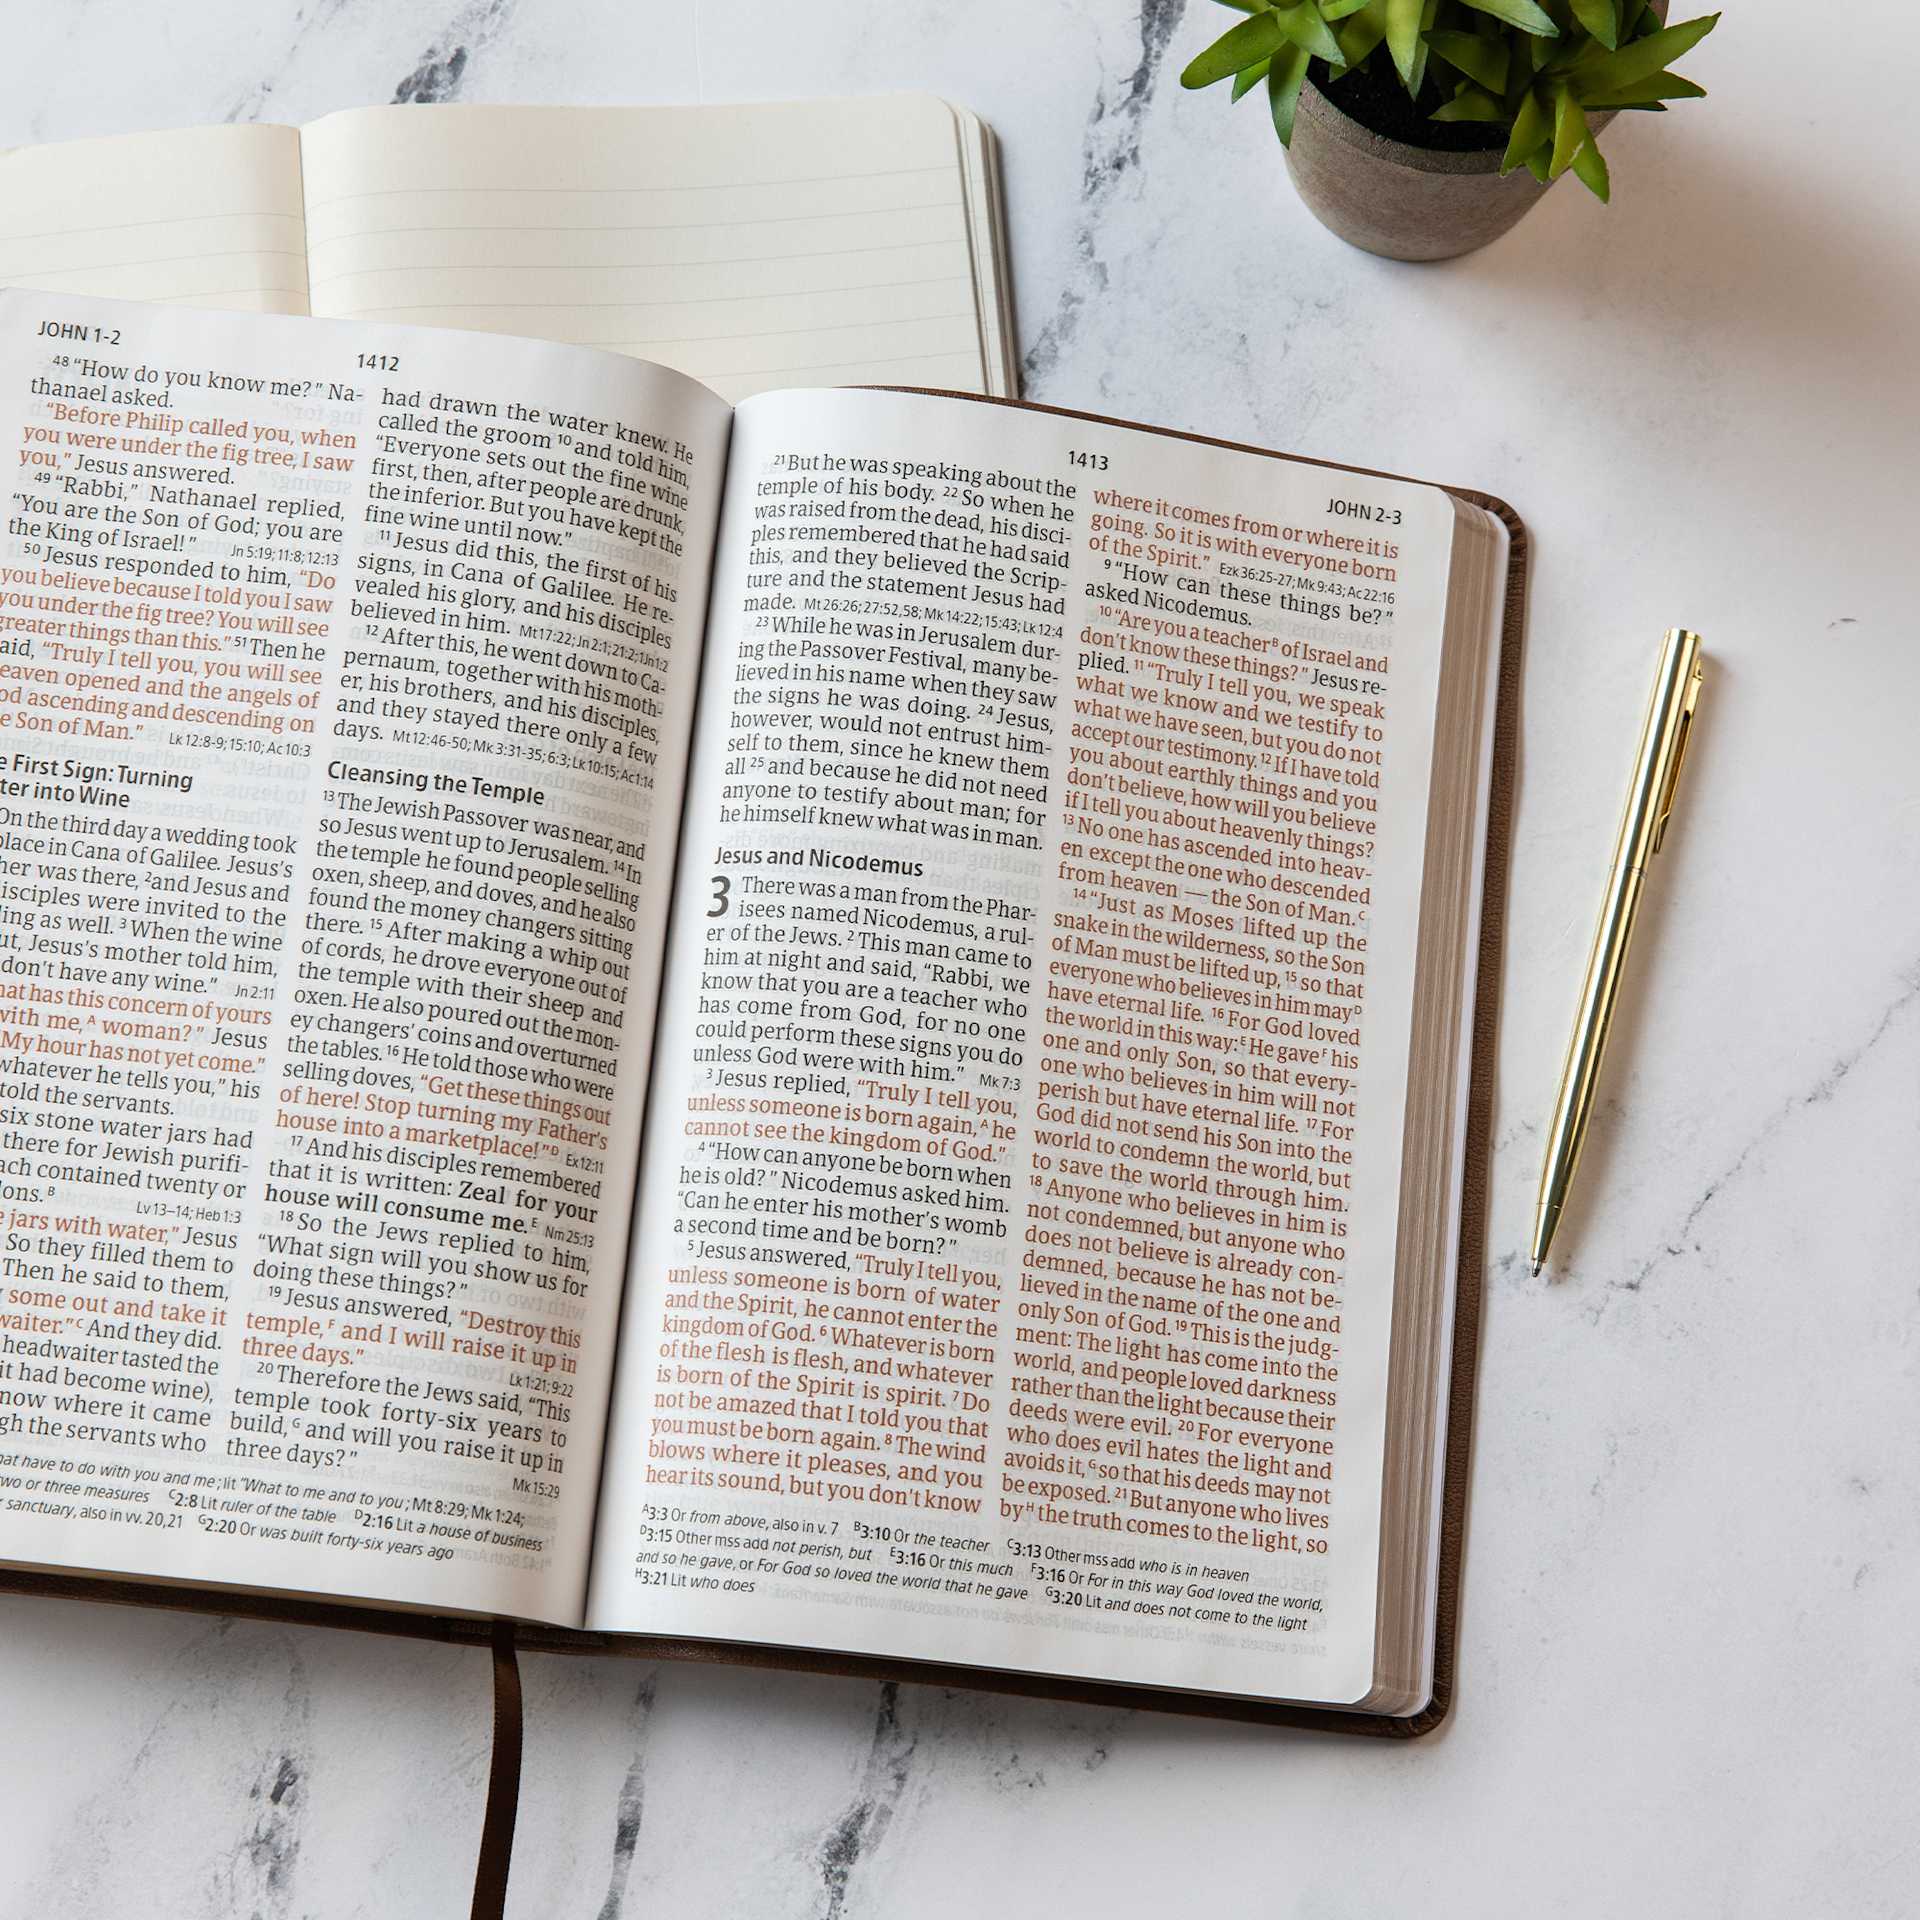 JOHN 1-2
1412
48 “How do you know me?” Na-
thanael asked.
“Before Philip called you, when
you were under the fig tree, I saw
you,” Jesus answered.
49 “Rabbi,” Nathanael replied,
“You are the Son of God; you are
the King of Israel!” Jn 5:19; 11:8; 12:13
50 Jesus responded to him, “Do
you believe because I told you I saw
you under the fig tree? You will see
greater things than this.” 51 Then he
said, “Truly I tell you, you will see
eaven opened and the angels of
od ascending and descending on
e Son of Man.” Lk 12:8-9; 15:10; Ac 10:3
e First Sign: Turning
ter into Wine
On the third day a wedding took
place in Cana of Galilee. Jesus’s
her was there, 2 and Jesus and
isciples were invited to the
ing as well. 3 When the wine
ut, Jesus’s mother told him,
don’t have any wine.” Jn 2:11
hat has this concern of yours
with me, A woman?” Jesus
My hour has not yet come.”
whatever he tells you,” his
told the servants.
six stone water jars had
there for Jewish purifi-
ach contained twenty or
lons. B
Lv 13–14; Heb 1:3
e jars with water,” Jesus
So they filled them to
Then he said to them,
some out and take it
waiter.” C And they did.
headwaiter tasted the
it had become wine),
now where it came
gh the servants who
had drawn the water knew. He
called the groom 10 and told him,
“Everyone sets out the fine wine
first, then, after people are drunk,
the inferior. But you have kept the
fine wine until now.”
11 Jesus did this, the first of his
signs, in Cana of Galilee. He re-
vealed his glory, and his disciples
believed in him. Mt 17:22; Jn 2:1; 21:2; 1Jn 1:2
12 After this, he went down to Ca-
pernaum, together with his moth-
er, his brothers, and his disciples,
and they stayed there only a few
days. Mt 12:46-50; Mk 3:31-35; 6:3; Lk 10:15; Ac 1:14
Cleansing the Temple
13 The Jewish Passover was near, and
so Jesus went up to Jerusalem. 14 In
the temple he found people selling
oxen, sheep, and doves, and he also
found the money changers sitting
there. 15 After making a whip out
of cords, he drove everyone out of
the temple with their sheep and
oxen. He also poured out the mon-
ey changers’ coins and overturned
the tables. 16 He told those who were
selling doves, “Get these things out
of here! Stop turning my Father’s
house into a marketplace!” D Ex 12:11
17 And his disciples remembered
that it is written: Zeal for your
house will consume me. E Nm 25:13
18 So the Jews replied to him,
“What sign will you show us for
doing these things?”
19 Jesus answered, “Destroy this
temple, F and I will raise it up in
three days.” Lk 1:21; 9:22
20 Therefore the Jews said, “This
temple took forty-six years to
build, G and will you raise it up in
three days?” Mk 15:29
hat have to do with you and me; lit “What to me and to you; Mt 8:29; Mk 1:24;
two or three measures C2:8 Lit ruler of the table D2:16 Lit a house of business
sanctuary, also in vv. 20,21 G2:20 Or was built forty-six years ago
1413
JOHN 2-3
21 But he was speaking about the
temple of his body. 22 So when he
was raised from the dead, his disci-
ples remembered that he had said
this, and they believed the Scrip-
ture and the statement Jesus had
made. Mt 26:26; 27:52,58; Mk 14:22; 15:43; Lk 12:4
23 While he was in Jerusalem dur-
ing the Passover Festival, many be-
lieved in his name when they saw
the signs he was doing. 24 Jesus,
however, would not entrust him-
self to them, since he knew them
all 25 and because he did not need
anyone to testify about man; for
he himself knew what was in man.
Jesus and Nicodemus
3 There was a man from the Phar-
isees named Nicodemus, a rul-
er of the Jews. 2 This man came to
him at night and said, “Rabbi, we
know that you are a teacher who
has come from God, for no one
could perform these signs you do
unless God were with him.” Mk 7:3
3 Jesus replied, “Truly I tell you,
unless someone is born again, A he
cannot see the kingdom of God.”
4 “How can anyone be born when
he is old?” Nicodemus asked him.
“Can he enter his mother’s womb
a second time and be born?”
5 Jesus answered, “Truly I tell you,
unless someone is born of water
and the Spirit, he cannot enter the
kingdom of God. 6 Whatever is born
of the flesh is flesh, and whatever
is born of the Spirit is spirit. 7 Do
not be amazed that I told you that
you must be born again. 8 The wind
blows where it pleases, and you
hear its sound, but you don’t know
where it comes from or where it is
going. So it is with everyone born
of the Spirit.” Ezk 36:25-27; Mk 9:43; Ac 22:16
9 “How can these things be?”
asked Nicodemus.
10 “Are you a teacher B of Israel and
don’t know these things?” Jesus re-
plied. 11 “Truly I tell you, we speak
what we know and we testify to
what we have seen, but you do not
accept our testimony. 12 If I have told
you about earthly things and you
don’t believe, how will you believe
if I tell you about heavenly things?
13 No one has ascended into heav-
en except the one who descended
from heaven — the Son of Man. C
14 “Just as Moses lifted up the
snake in the wilderness, so the Son
of Man must be lifted up, 15 so that
everyone who believes in him may D
have eternal life. 16 For God loved
the world in this way: E He gave F his
one and only Son, so that every-
one who believes in him will not
perish but have eternal life. 17 For
God did not send his Son into the
world to condemn the world, but
to save the world through him.
18 Anyone who believes in him is
not condemned, but anyone who
does not believe is already con-
demned, because he has not be-
lieved in the name of the one and
only Son of God. 19 This is the judg-
ment: The light has come into the
world, and people loved darkness
rather than the light because their
deeds were evil. 20 For everyone
who does evil hates the light and
avoids it, G so that his deeds may not
be exposed. 21 But anyone who lives
by H the truth comes to the light, so
A3:3 Or from above, also in v. 7 B3:10 Or the teacher C3:13 Other mss add who is in heaven
D3:15 Other mss add not perish, but E3:16 Or this much F3:16 Or For in this way God loved the world,
and so he gave, or For God so loved the world that he gave G3:20 Lit and does not come to the light
H3:21 Lit who does